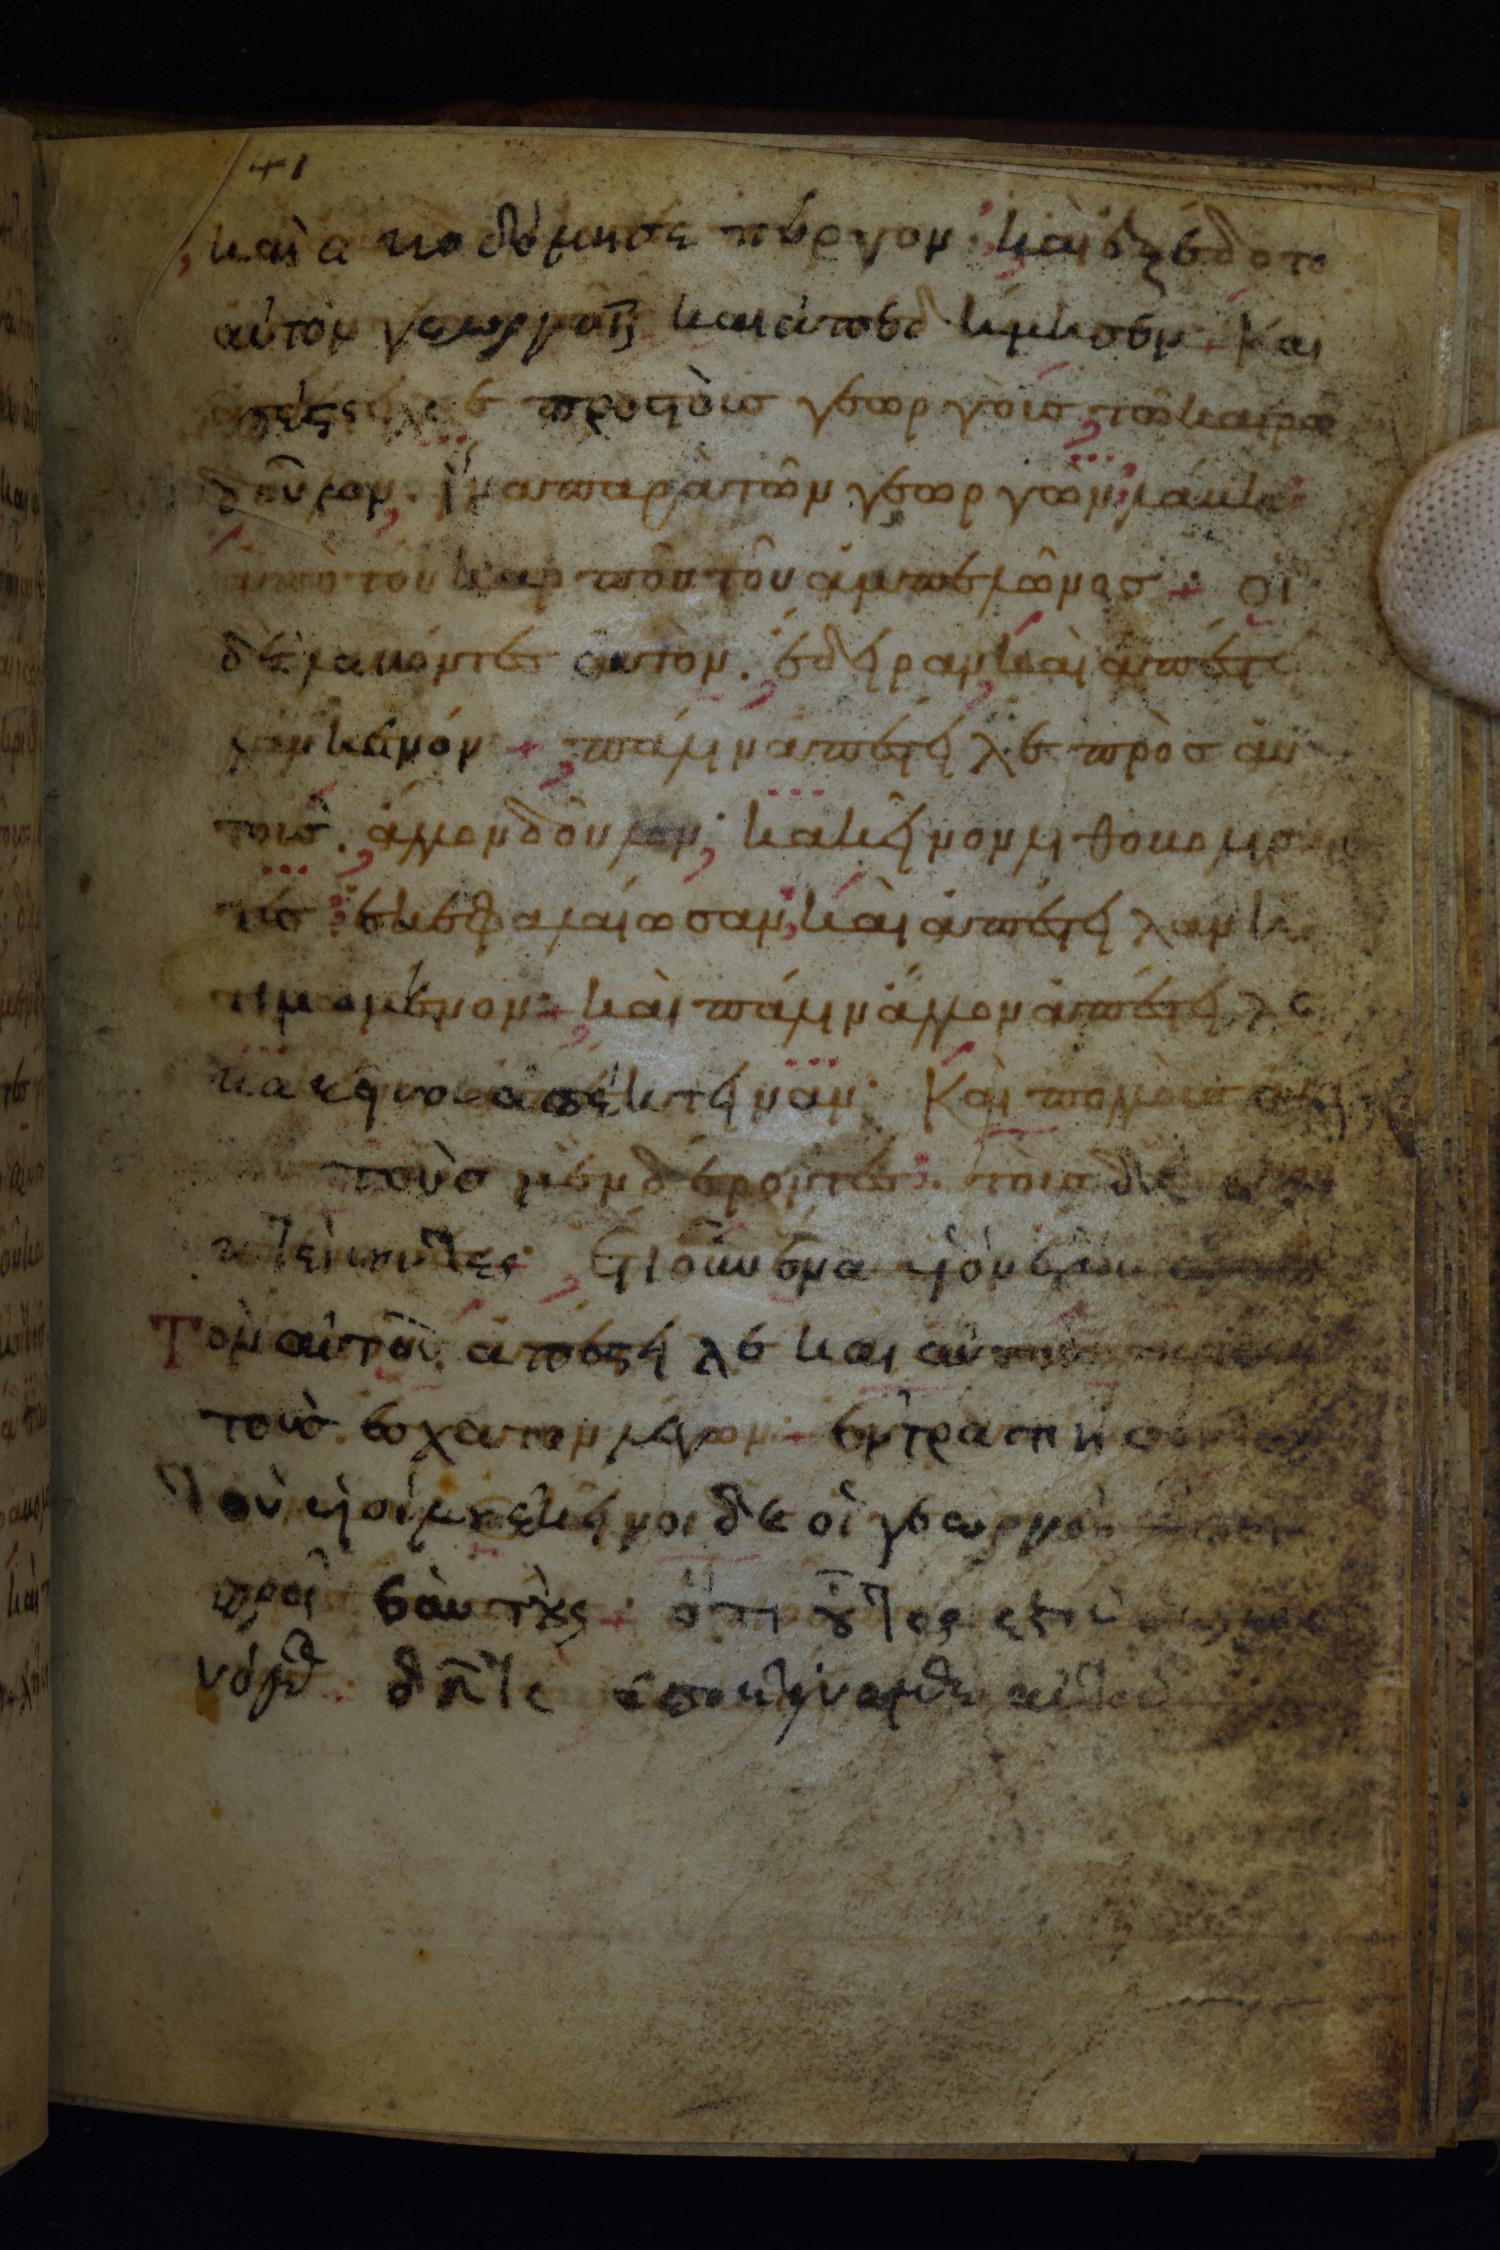 41
καὶ ὠκοδόμησε πύργον· καὶ ἐξέδοτο
αὐτὸν γεωργοῖς καὶ ἀπεδήμησεν + Καὶ
ἀπέστειλε πρὸς τοὺσ γεωργοὺσ τῶ καιρῶ
δοῦλον. ἵνα παρὰ τῶν γεωργῶν λάβη
ἀπὸ τοῦ καρποῦ τοῦ ἀμπελῶνοσ + οἱ
δὲ λαβόντεσ αὐτὸν. ἔδειραν καὶ ἀπέστει
λαν κενόν + πάλιν ἀπέστειλε πρὸσ αὐ
τοὺσ. ἄλλον δοῦλον· κακεῖνον λιθοβολήσαν
τεσ ἐκεφαλαίωσαν, καὶ ἀπέστειλαν
τιμωμένον + καὶ πάλιν ἄλλον ἀπέστειλε
κακεῖνον ἀπέκτειναν· Καὶ πολλοὺσ
τοὺσ μὲν δέροντεσ. τοὺσ δὲ
κτένοντες· ἔτι οὖν ἕνα υἱὸν ἔχων
Τὸν αὐτοῦ. ἀπέστειλε καὶ αὐτὸν πρὸσ
τοὺσ ἔσχατον λέγων + ἐντραπήσονται
τὸν υἱόν μου ἐκεῖνοι δὲ οἱ γεωργοὶ
πρὸς ἑαυτοὺς + ὅτι οὗτος ἐστιν
νόμος δεῦτε ἀποκτείνωμεν αὐτὸν